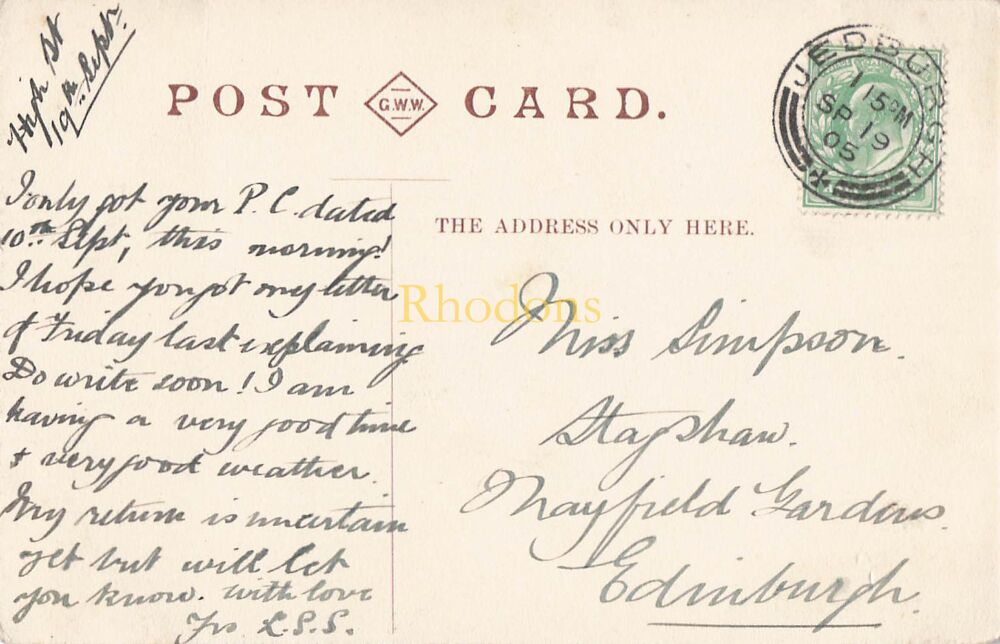 High St
19th Sept.
POST G.W.W. CARD.
JEDBURGH
1 15PM
SP 19
05
THE ADDRESS ONLY HERE.
I only got your P.C. dated
10th Sept, this morning!
I hope you got my letter
of Friday last explaining
Do write soon! I am
having a very good time
& very good weather.
My return is uncertain
yet but will let
you know. with love
Yrs L.S.S.
Miss Simpson.
Stagshaw.
Mayfield Gardens.
Edinburgh.
Rhodons